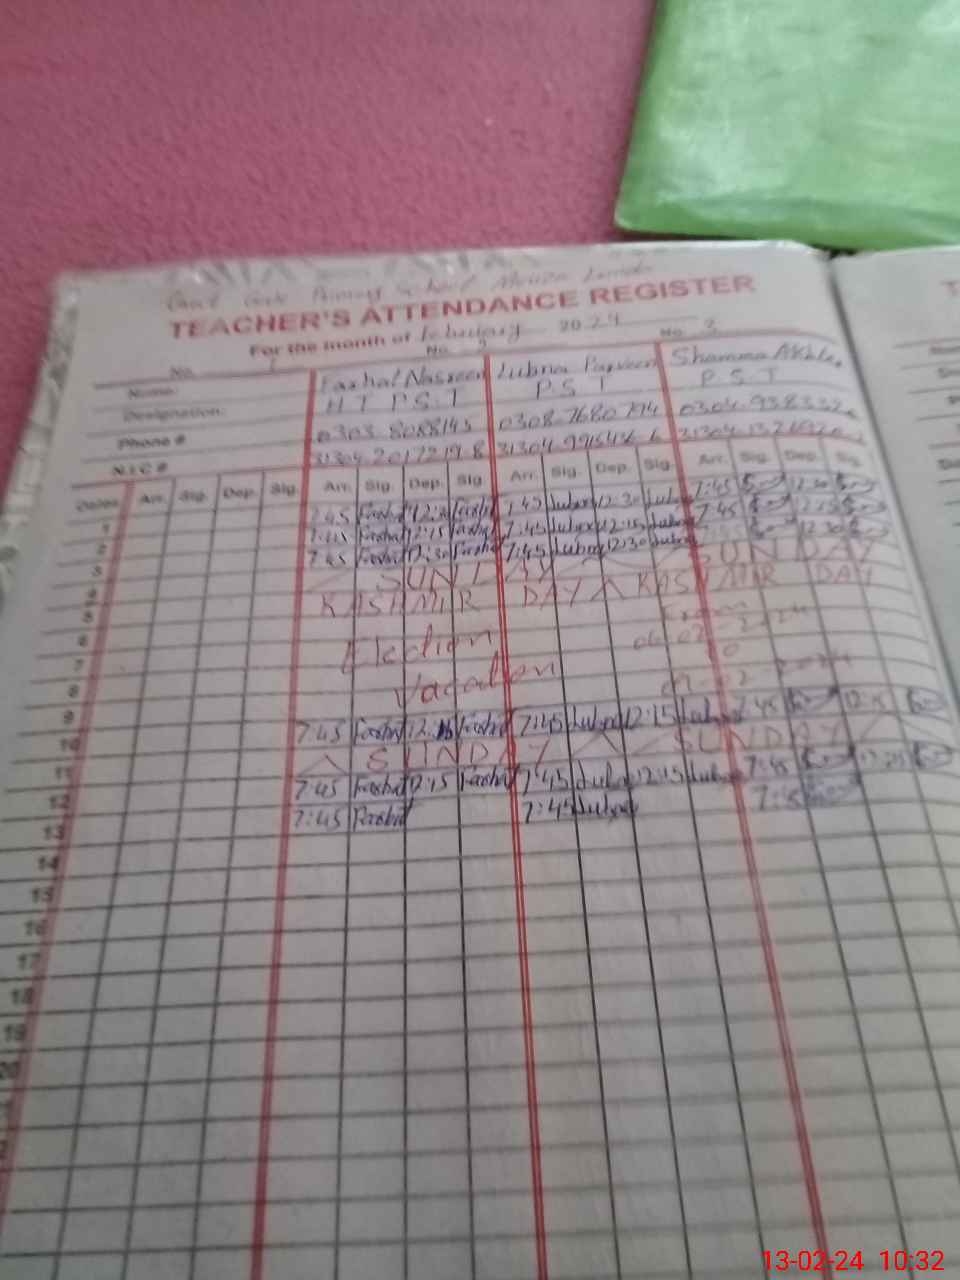 Govt Girls Primary School
TEACHER'S ATTENDANCE REGISTER
For the month of February 2024
No. 1 No. 2 No. 3
Name: Farhat Nasreen Lubna Parveen Shamma Akhter
Designation: H T P.S.T P.S.T P.S.T
Phone # 0303.8088145 0308.7680794
N.I.C #
Dates Arr. Sig. Dep. Sig. Arr. Sig. Dep. Sig. Arr. Sig. Dep. Sig. Arr. Sig. Dep. Sig.
1 7:45 Farhat 12:30 Farhat 7:45 Lubna 12:30 Lubna 7:45 12:30
2 7:45 Farhat 12:15 Farhat 7:45 Lubna 12:15 Lubna 7:45 12:15
3 7:45 Farhat 12:30 Farhat 7:45 Lubna 12:30 Lubna 12:30
4 SUNDAY SUNDAY
5 KASHMIR DAY KASHMIR DAY
6 Election From
7 Vacation to
8
9
10 7:45 Farhat 12:15 Farhat 7:45 Lubna 12:15 Lubna 7:45 12:15
11 SUNDAY SUNDAY
12 7:45 Farhat 12:15 Farhat 7:45 Lubna 12:15 Lubna 7:45
13 7:45 Farhat 7:45 Lubna 7:45
14
15
16
17
18
19
20
13-02-24 10:32